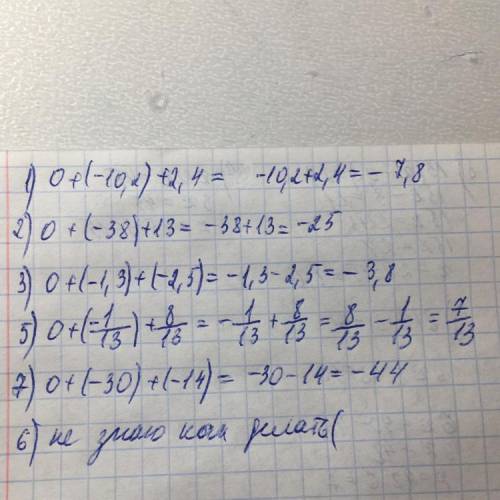 1) 0+(-10,2)+2,4= -10,2+2,4=-7,8
2) 0+(-38)+13=-38+13=-25
3) 0+(-1,3)+(-2,5)=-1,3-2,5=-3,8
5) 0+(-1/13)+8/13=-1/13+8/13=8/13-1/13=7/13
7) 0+(-30)+(-14)=-30-14=-44
6) не знаю как делать(